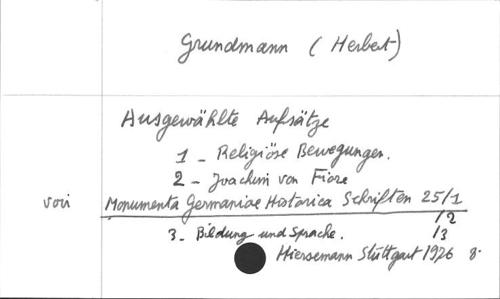 Grundmann (Herbert)
Ausgewählte Aufsätze
1 - Religiöse Bewegungen.
2 - Joachim von Fiore
voir Monumenta Germaniae Historica Schriften 25/1
/2
3 - Bildung und Sprache. /3
Hiersemann Stuttgart 1976 8.